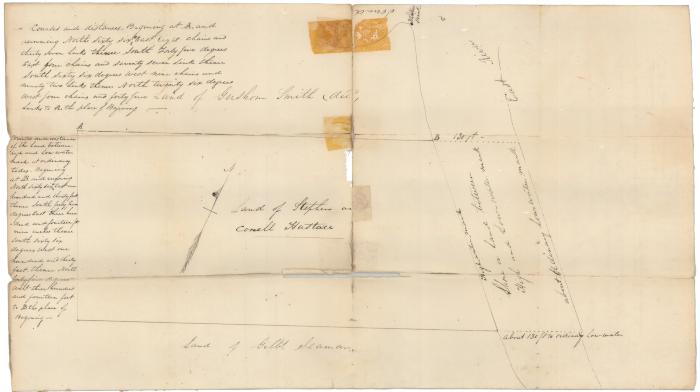 Courses and distances Begining at A and
running North Sixty six° East eight chains and
thirty seven links thence South forty five degrees
East four chains and seventy seven links thence
South sixty six degrees West nine chains and
ninety two links thence North twenty six degrees
West four chains and forty five
links to A the place of Begining
Land of Gershom Smith
A
Courses and distances
of the Land between
high and low water
mark at ordinary
tides Begining
at B and running
North sixty six° East one
hundred and thirty feet
thence South forty five
degrees East three hun
dred and fourteen ft
nine inches thence
South sixty six
degrees West one
hundred and thirty
feet thence North
forty five degrees
West three hundred
and fourteen feet
to B the place of
Begining
B 130 ft
East River
Land of Stephen
Conell
High water mark
Shore or land between
High and Low water mark
about ordinary Low water mark
about 130 ft to ordinary low water
Land of Gilbt Seaman